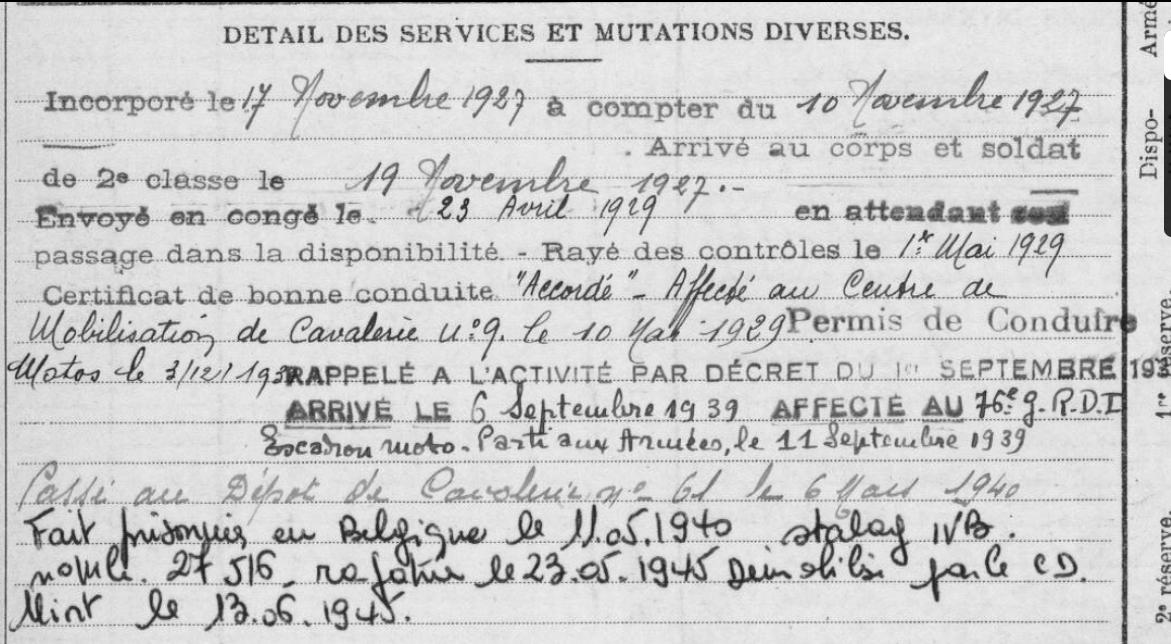 DETAIL DES SERVICES ET MUTATIONS DIVERSES.
Incorporé le 17 Novembre 1927 à compter du 10 Novembre 1927
. Arrivé au corps et soldat
de 2e classe le 19 Novembre 1927.-
Envoyé en congé le 23 Avril 1929 en attendant
passage dans la disponibilité. - Rayé des contrôles le 1er Mai 1929
Certificat de bonne conduite "Accordé" - Affecté au Centre de
Mobilisation de Cavalerie n°9. le 10 Mai 1929 Permis de Conduire
Motos le 3/12/ RAPPELÉ A L'ACTIVITÉ PAR DÉCRET DU 1er SEPTEMBRE 193
ARRIVÉ LE 6 Septembre 1939 AFFECTÉ AU 76e G.R.D.I
Escadron moto. Parti aux Armées, le 11 Septembre 1939
Passé au Dépôt de Cavalerie n° 61 le 6 Mars 1940
Fait prisonnier en Belgique le 11.05.1940 stalag IVB.
27 516 - le 23.05.1945 Démobilisé par le CD.
le 13.06.1945.
Armé
Dispo-
1re réserve
2e réserve